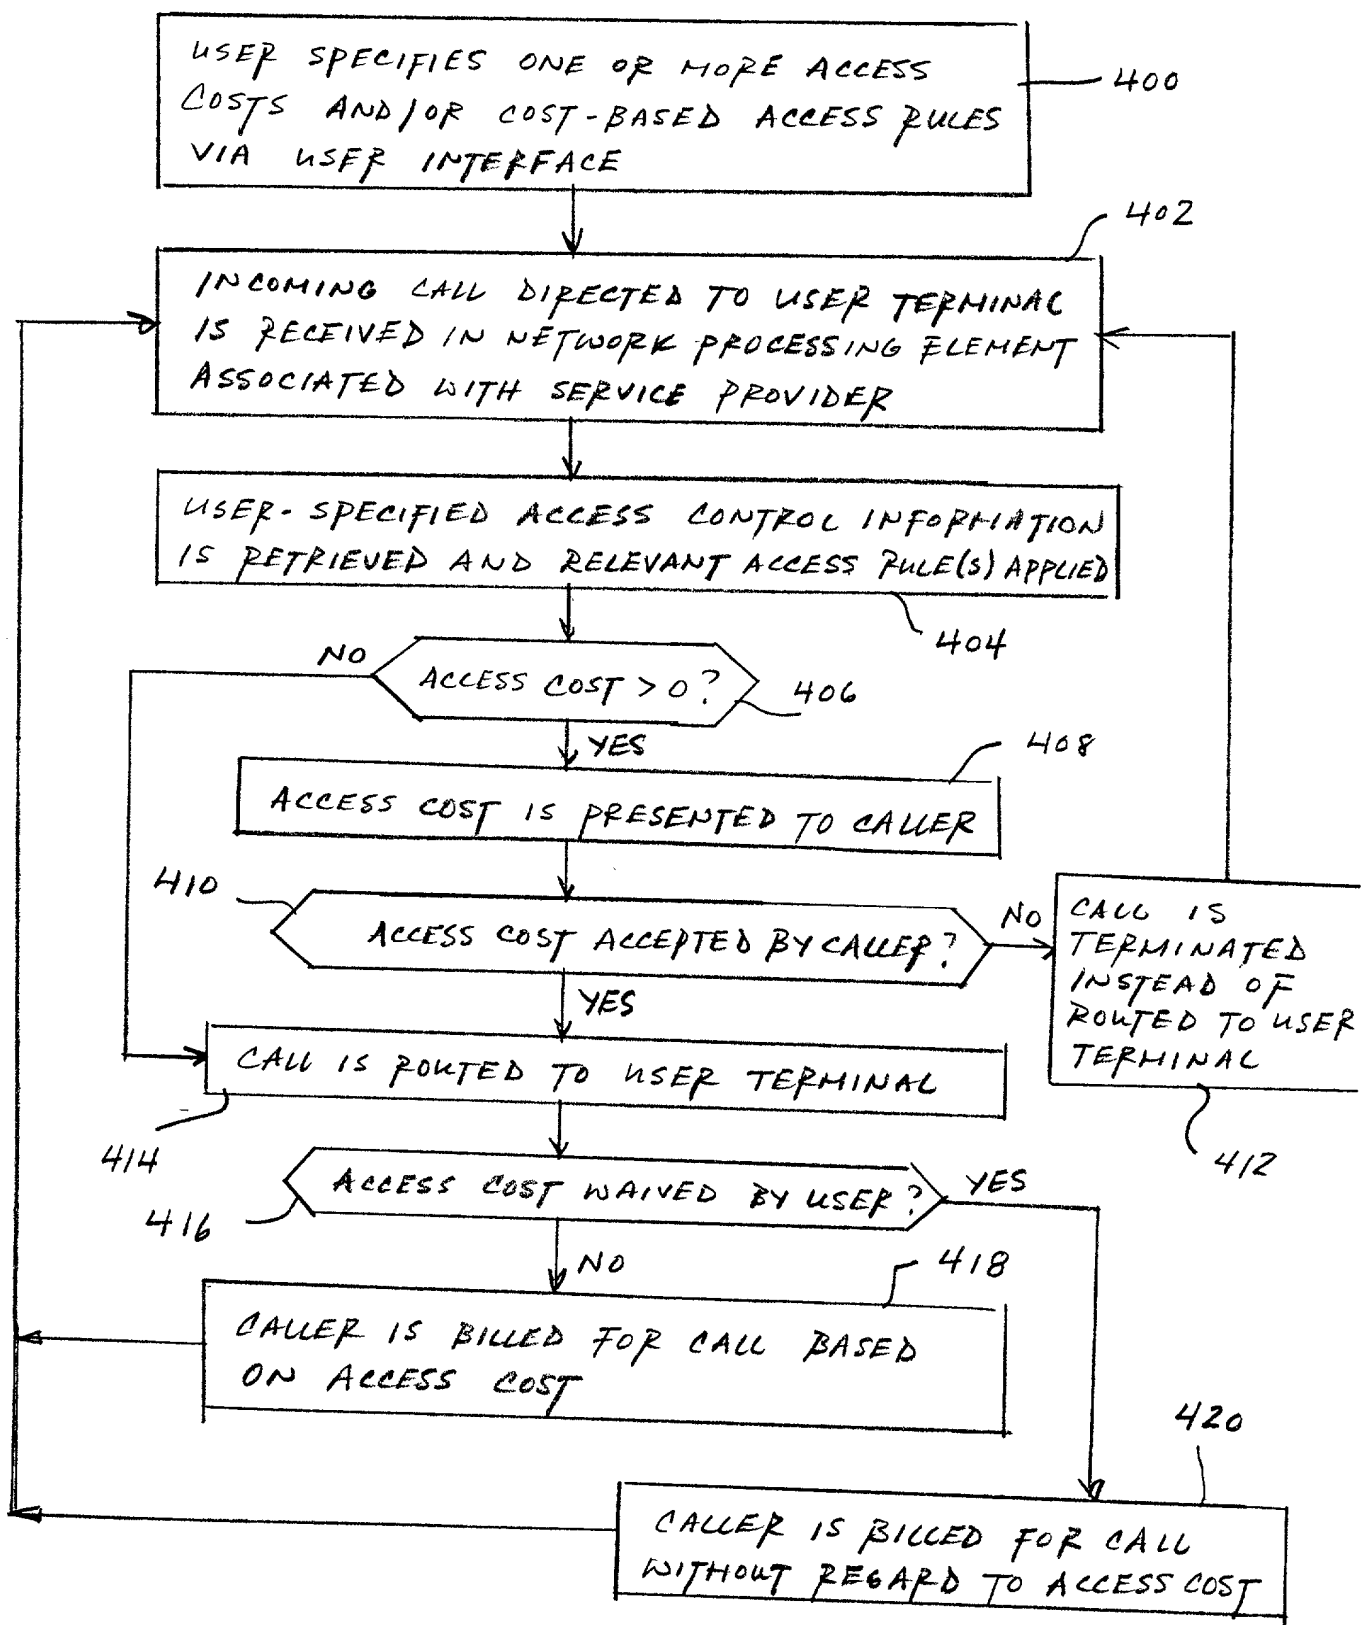 USER SPECIFIES ONE OR MORE ACCESS
COSTS AND/OR COST-BASED ACCESS RULES
VIA USER INTERFACE
400
402
INCOMING CALL DIRECTED TO USER TERMINAL
IS RECEIVED IN NETWORK PROCESSING ELEMENT
ASSOCIATED WITH SERVICE PROVIDER
USER-SPECIFIED ACCESS CONTROL INFORMATION
IS RETRIEVED AND RELEVANT ACCESS RULE(S) APPLIED
404
NO
ACCESS COST > 0?
406
YES
408
ACCESS COST IS PRESENTED TO CALLER
410
ACCESS COST ACCEPTED BY CALLER?
NO
CALL IS
TERMINATED
INSTEAD OF
ROUTED TO USER
TERMINAL
412
YES
CALL IS ROUTED TO USER TERMINAL
414
ACCESS COST WAIVED BY USER?
YES
416
NO
418
CALLER IS BILLED FOR CALL BASED
ON ACCESS COST
420
CALLER IS BILLED FOR CALL
WITHOUT REGARD TO ACCESS COST